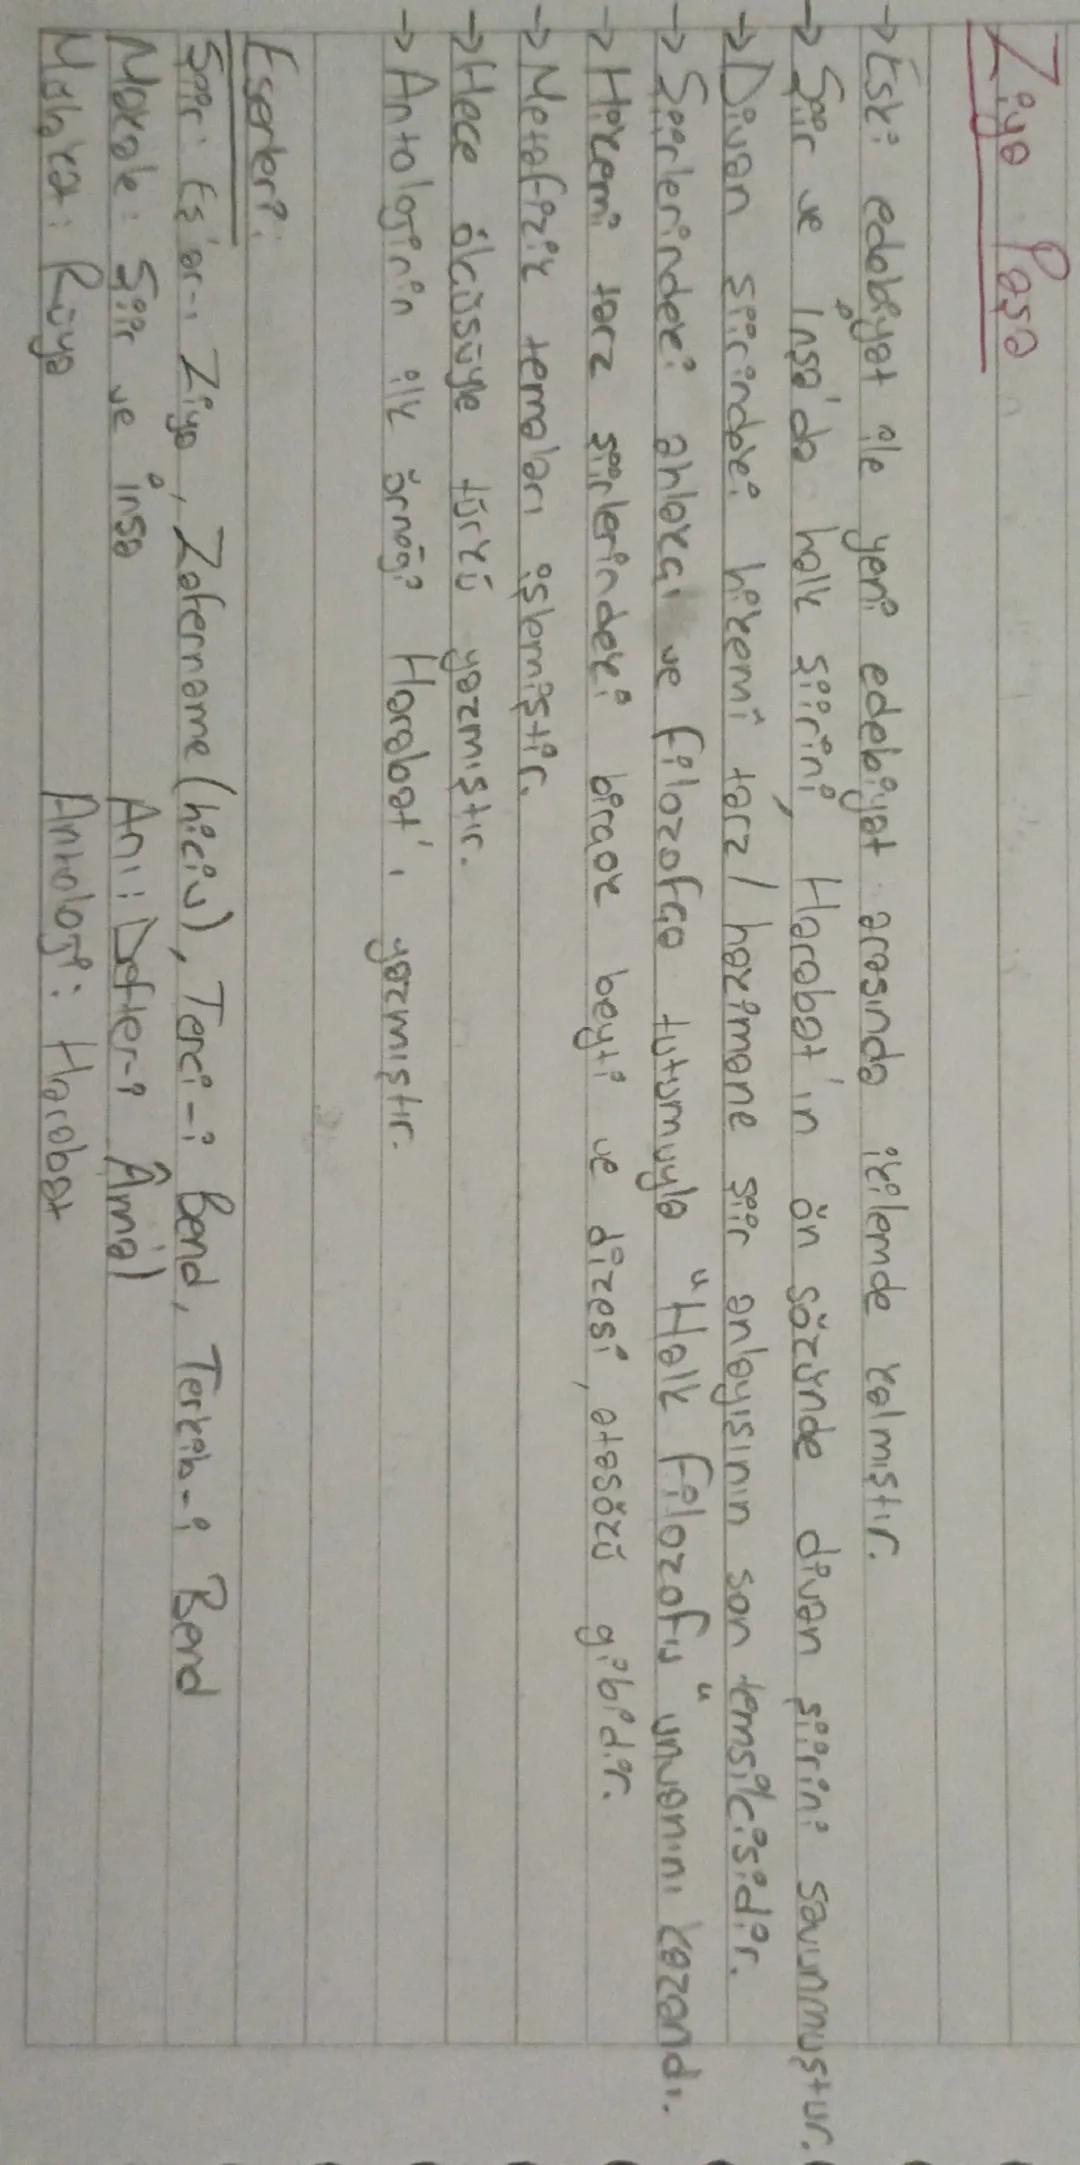 Ziya Paşa
→ Eski edebiyat ile yeni edebiyat arasında ikilemde kalmıştır.
→ Şiir ve İnşa'da halk şiirini, Harabat'ın ön sözünde divan şiirini savunmuştur.
→ Divan şiirindeki hikemî tarz / hakimane şiir anlayışının son temsilcisidir.
→ Şiirlerindeki ahlakçı ve filozofça tutumuyla "Halk Filozofu" unvanını kazandı.
→ Hikemi tarz şiirlerindeki birçok beyti ve dizesi, atasözü gibidir.
→ Metafizik temaları işlemiştir.
→ Hece ölçüsüyle türkü yazmıştır.
→ Antolojinin ilk örneği Harabat'ı yazmıştır.
Eserleri:
Şiir: Eş'ar-ı Ziya, Zafername (hiciv), Terci-i Bend, Terkib-i Bend
Makale: Şiir ve inşa Anı: Defter-i Âmâl
Mülakat: Rüya Antoloji: Harabat